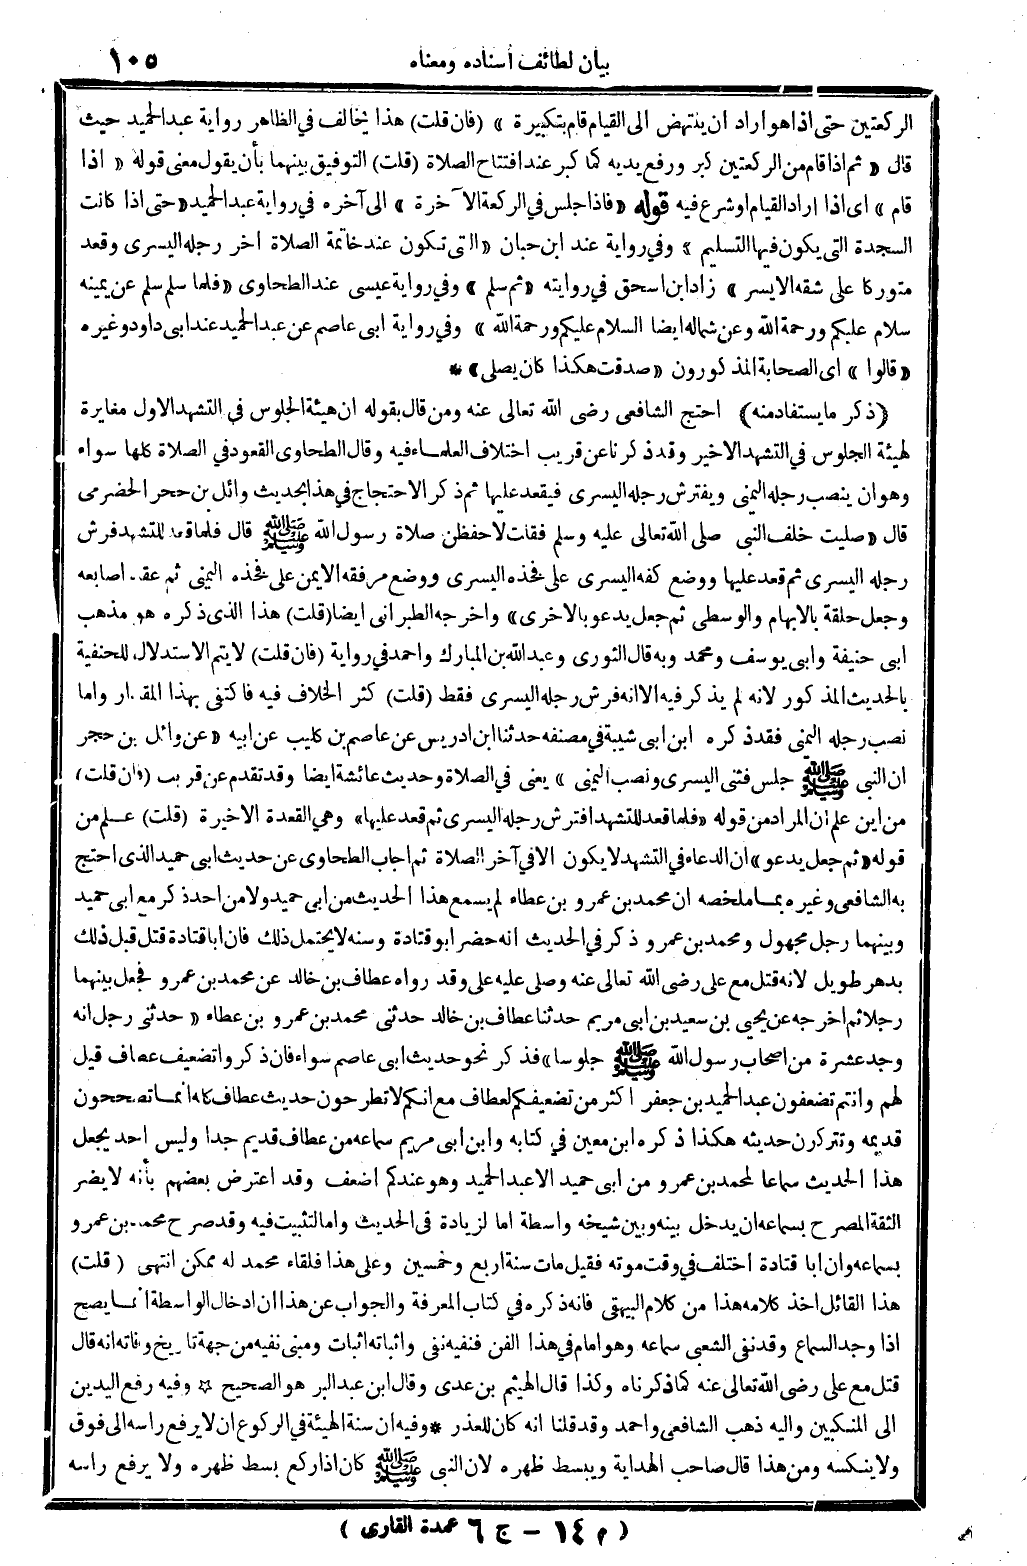 بيان لطائف أسناده ومعناه ١٠٥
الركعتين حتى اذا هو اراد ان ينتهض الى القيام قام بتكبيرة » (فان قلت) هذا يخالف في الظاهر رواية عبد الحميد حيث
قال « ثم اذا قام من الركعتين كبر ورفع يديه كما كبر عند افتتاح الصلاة (قلت) التوفيق بينهما بأن يقول معنى قوله « اذا
قام » اى اذا اراد القيام او شرع فيه قوله « فاذا جلس في الركعة الآخرة » الى آخره في رواية عبد الحميد « حتى اذا كانت
السجدة التى يكون فيها التسليم » وفي رواية عند ابن حبان « التى تكون عند خاتمة الصلاة اخر رجله اليسرى وقعد
متوركا على شقه الايسر » زاد ابن اسحق في روايته « ثم سلم » وفي رواية عيسى عند الطحاوى « فلما سلم سلم عن يمينه
سلام عليكم ورحمة الله وعن شماله ايضا السلام عليكم ورحمة الله » وفي رواية ابى عاصم عن عبد الحميد عند ابى داود وغيره
« قالوا » اى الصحابة المذكورون « صدقت هكذا كان يصلى » *
(ذكر ما يستفاد منه) احتج الشافعى رضى الله تعالى عنه ومن قال بقوله ان هيئة الجلوس في التشهد الاول مغايرة
لهيئة الجلوس في التشهد الاخير وقد ذكرنا عن قريب اختلاف العلماء فيه وقال الطحاوى القعود في الصلاة كلها سواء
وهو ان ينصب رجله اليمنى ويفترش رجله اليسرى فيقعد عليها ثم ذكر الاحتجاج في هذا بحديث وائل بن حجر الحضرمى
قال « صليت خلف النبى صلى الله تعالى عليه وسلم فقلت لاحفظن صلاة رسول الله ﷺ قال فلما قعد للتشهد فرش
رجله اليسرى ثم قعد عليها ووضع كفه اليسرى على فخذه اليسرى ووضع مرفقه الايمن على فخذه اليمنى ثم عقد اصابعه
وجعل حلقة بالابهام والوسطى ثم جعل يدعو بالاخرى » واخرجه الطبرانى ايضا (قلت) هذا الذى ذكره هو مذهب
ابى حنيفة وابى يوسف ومحمد وبه قال الثورى وعبد الله بن المبارك واحمد في رواية (فان قلت) لا يتم الاستدلال للحنفية
بالحديث المذكور لانه لم يذكر فيه الا انه فرش رجله اليسرى فقط (قلت) كثر الخلاف فيه فاكتفى بهذا المقدار واما
نصب رجله اليمنى فقد ذكره ابن ابى شيبة في مصنفه حدثنا ابن ادريس عن عاصم بن كليب عن ابيه « عن وائل بن حجر
ان النبى ﷺ جلس فثنى اليسرى ونصب اليمنى » يعنى في الصلاة وحديث عائشة ايضا وقد تقدم عن قريب (فان قلت)
من اين علم ان المراد من قوله « فلما قعد للتشهد افترش رجله اليسرى ثم قعد عليها » وهي القعدة الاخيرة (قلت) علم من
قوله « ثم جعل يدعو » ان الدعاء في التشهد لا يكون الا في آخر الصلاة ثم اجاب الطحاوى عن حديث ابى حميد الذى احتج
به الشافعى وغيره بما ملخصه ان محمد بن عمرو بن عطاء لم يسمع هذا الحديث من ابى حميد ولا من احد ذكر مع ابى حميد
وبينهما رجل مجهول ومحمد بن عمرو ذكر في الحديث انه حضر ابو قتادة وسنه لا يحتمل ذلك فان ابا قتادة قتل قبل ذلك
بدهر طويل لانه قتل مع على رضى الله تعالى عنه وصلى عليه على وقد رواه عطاف بن خالد عن محمد بن عمرو فجعل بينهما
رجلا ثم اخرجه عن يحيى بن سعيد بن ابى مريم حدثنا عطاف بن خالد حدثنى محمد بن عمرو بن عطاء « حدثنى رجل انه
وجد عشرة من اصحاب رسول الله ﷺ جلوسا » فذكر نحو حديث ابى عاصم سواء فان ذكروا تضعيف عطاف قيل
لهم وانتم تضعفون عبد الحميد بن جعفر اكثر من تضعيفكم لعطاف مع انكم لا تطرحون حديث عطاف كله انما تصححون
قديمه وتتركون حديثه هكذا ذكره ابن معين في كتابه وابن ابى مريم سماعه من عطاف قديم جدا وليس احد يجعل
هذا الحديث سماعا لمحمد بن عمرو من ابى حميد الا عبد الحميد وهو عندكم اضعف وقد اعترض بعضهم بأنه لا يضر
الثقة المصرح بسماعه ان يدخل بينه وبين شيخه واسطة اما لزيادة في الحديث واما لتثبيت فيه وقد صرح محمد بن عمرو
بسماعه وان ابا قتادة اختلف في وقت موته فقيل مات سنة اربع وخمسين وعلى هذا فلقاء محمد له ممكن انتهى (قلت)
هذا القائل اخذ كلامه هذا من كلام البيهقى فانه ذكره في كتاب المعرفة والجواب عن هذا ان ادخال الواسطة انما يصح
اذا وجد السماع وقد نفى الشعبى سماعه وهو امام في هذا الفن فنفيه نفى واثباته اثبات ومبنى نفيه من جهة تاريخ وفاته انه قال
قتل مع على رضى الله تعالى عنه كما ذكرناه وكذا قال الهيثم بن عدى وقال ابن عبد البر هو الصحيح ☆ وفيه رفع اليدين
الى المنكبين واليه ذهب الشافعى واحمد وقد قلنا انه كان للعذر * وفيه ان سنة الهيئة في الركوع ان لا يرفع راسه الى فوق
ولا ينكسه ومن هذا قال صاحب الهداية ويبسط ظهره لان النبى ﷺ كان اذا ركع بسط ظهره ولا يرفع راسه
(م ١٤ - ج ٦ عمدة القارى)